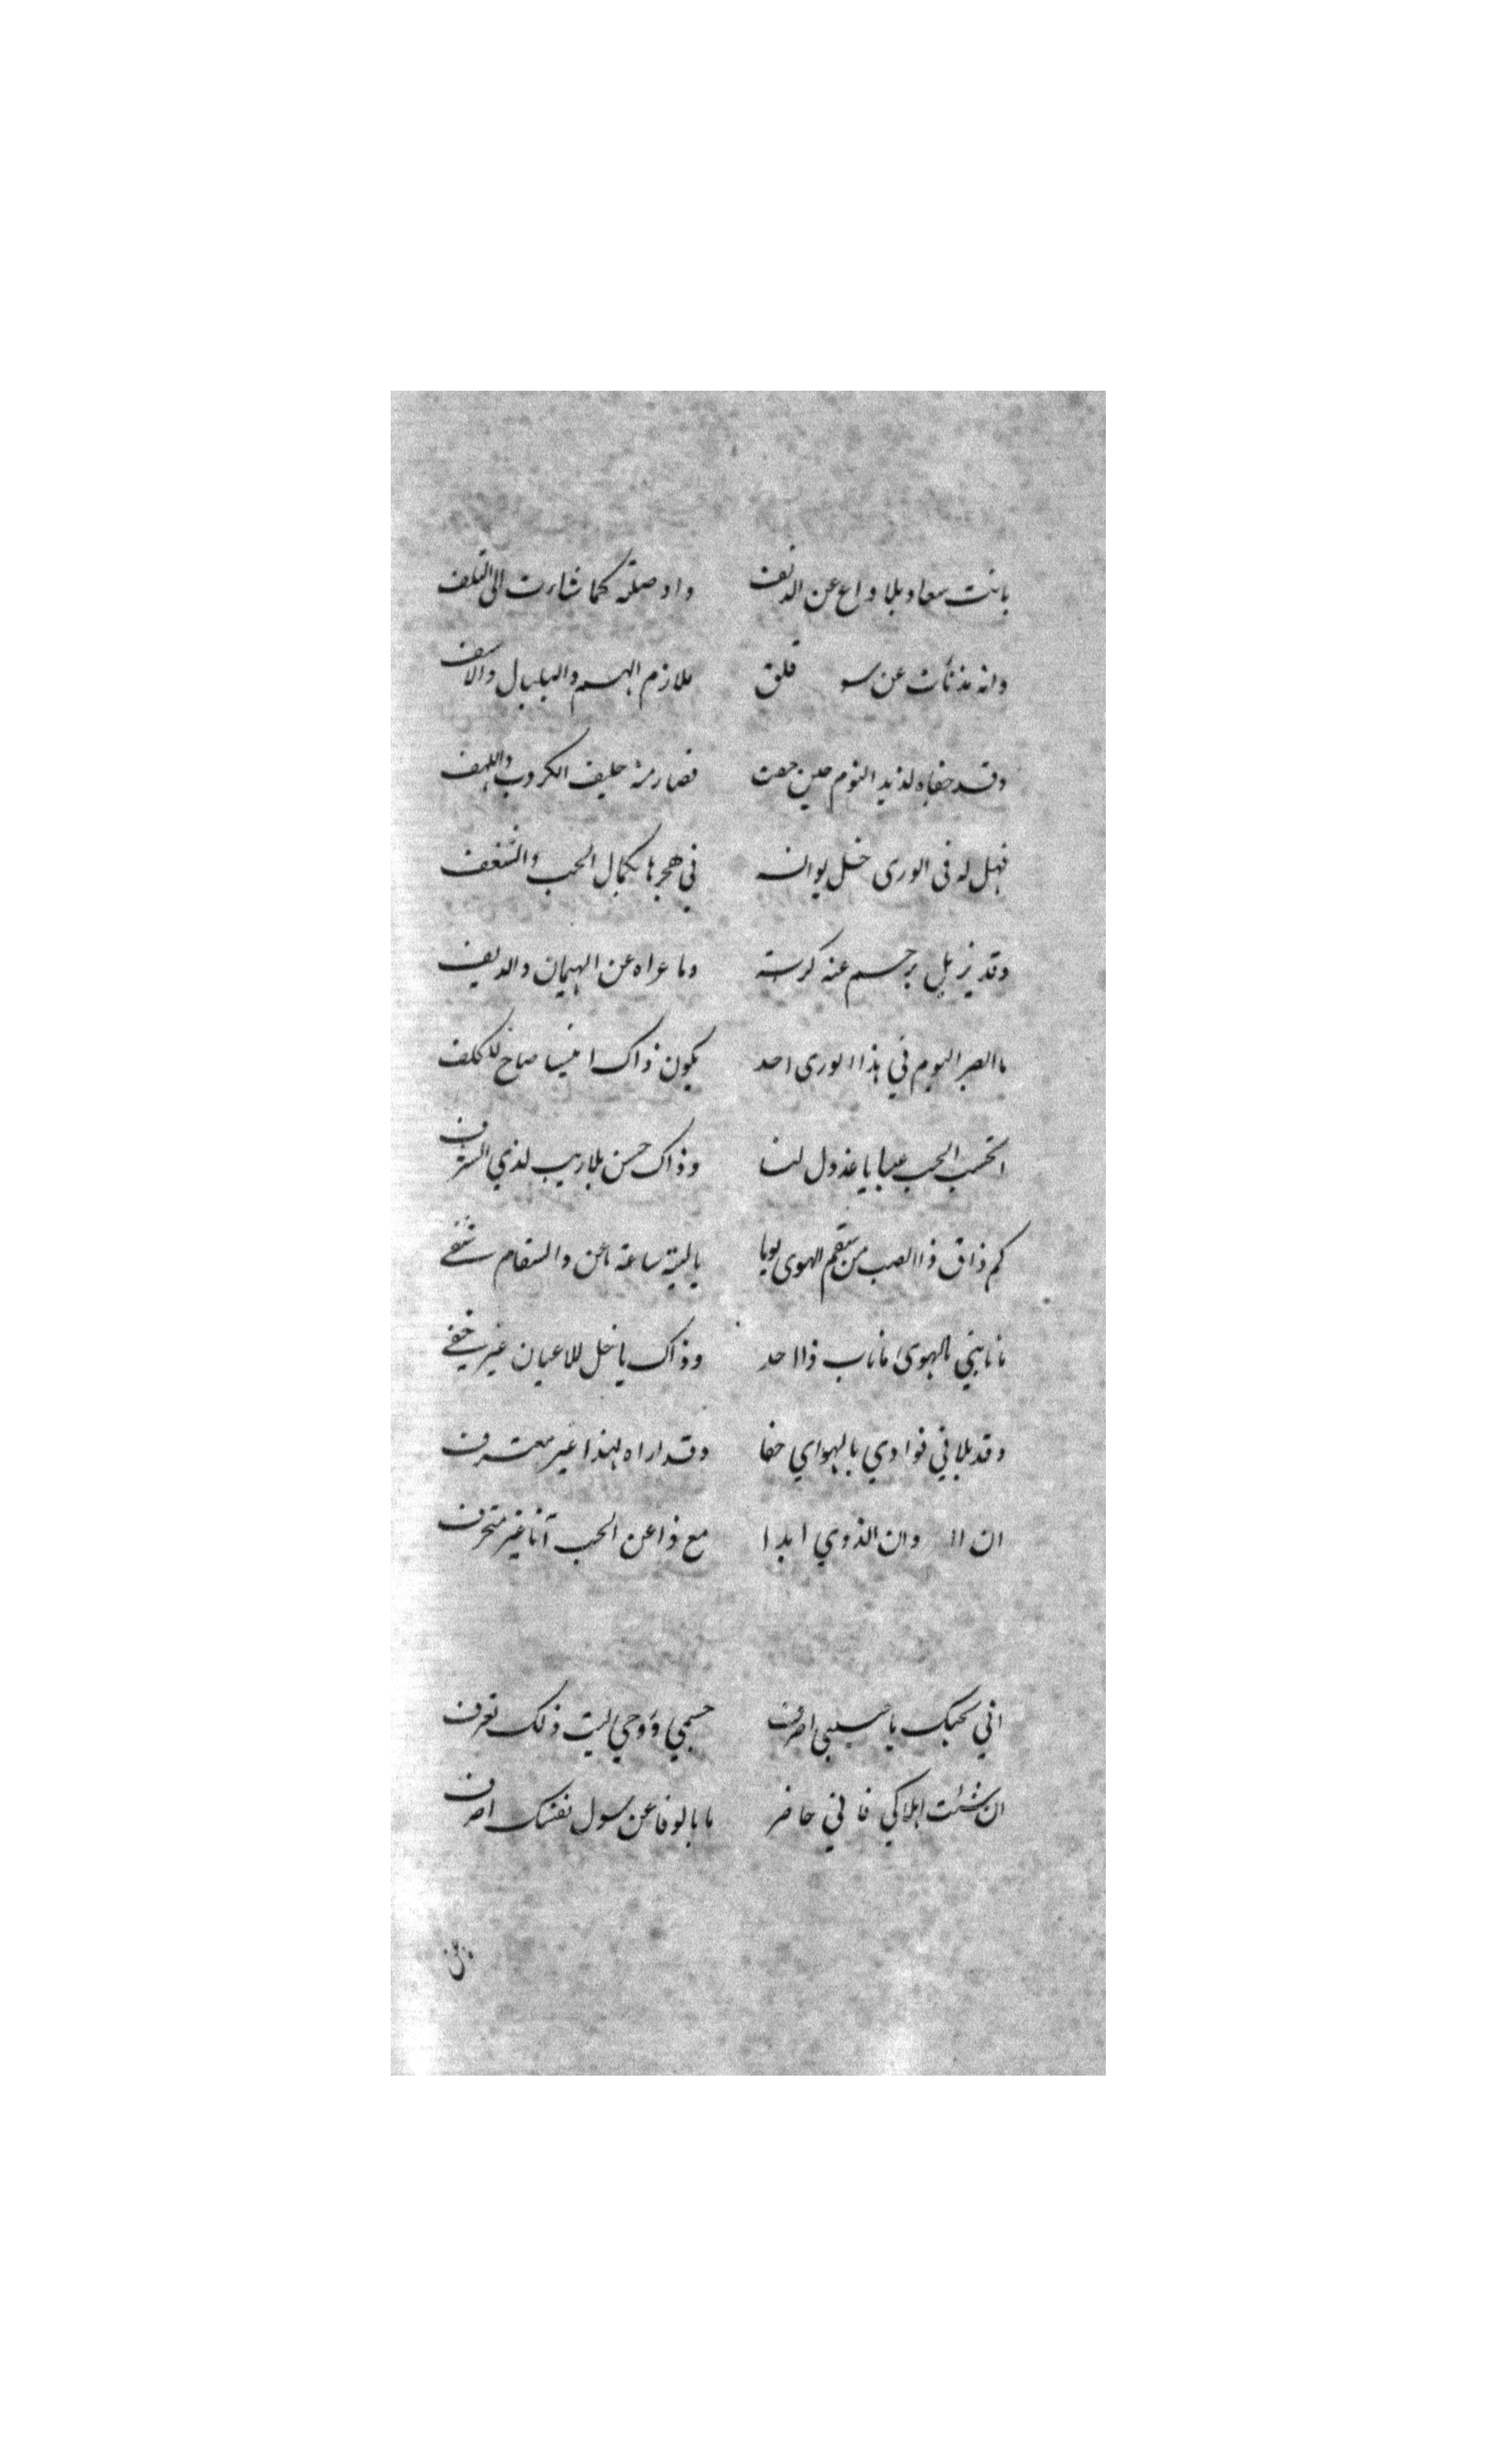 بانت سعاد بلا داع عن الدنف وادصلته كما شارت الى التلف
وانه مذنأت عن سو قلق ملازم الهم والبلبال والاسف
وقد جفاه لذيذ النوم حين جفت فصار منه حليف الكروب واللهف
فهل له فى الورى خل يوانسه في هجرها بكمال الحب والشغف
وقد يزيل برحم عنه كربته وما عراه عن الهيمان والديف
ما الصبر اليوم في هذا الورى احد يكون ذاك انيسا صاح للكلف
اتحسب الحب عيبا يا عذول لنا وذاك حسن بلا ريب لذي الشرف
كم ذاق ذا الصب من سقم الهوى يا ليته ساعة عن والسقام شفي
ما نابني بالهوى ما ناب ذا احد وذاك يا خل للاعيان غير خفي
وقد بلاني فوادي بالهواي جفا وقد اراه لهذا غير معترف
ان وان الذوي ابدا مع ذا عن الحب آنا غير منحرف
اني بحبك يا حبيبي اصرف جسمي وروحي ليت ذلك تعرف
ان شئت اهلاكي فاني حاضر ما بالوفا عن سول نفسك اصرف